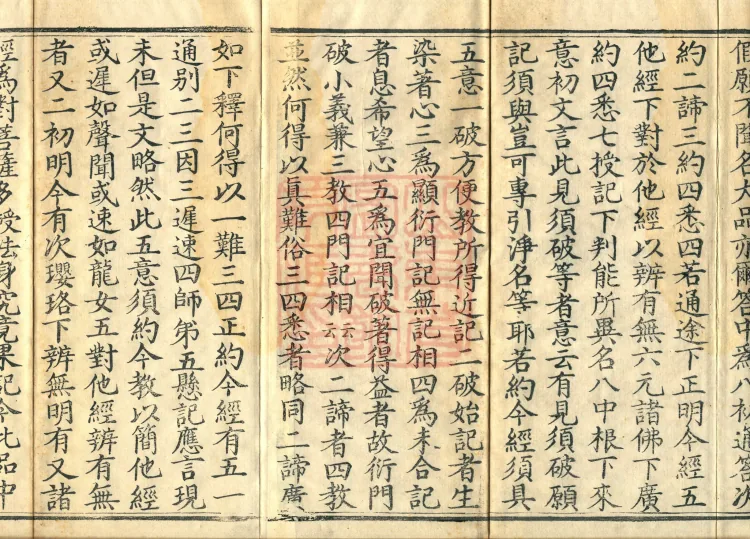 但願不聞名大品亦爾答中為八初通答次
約二諦三約四悉四若通途下正明今經五
他經下對於他經以辨有無六元諸佛下廣
約四悉七授記下判能所異名八中根下來
意初文言此見須破等者意云有見須破願
記須與豈可專引淨名等耶若約今經須具
五意一破方便教所得近記二破始記者生
染著心三為顯衍門記無記相四為未合記
者息希望心五為宜聞破著得益者故衍門
破小義兼三教四門記相云云次二諦者四教
並然何得以真難俗三四悉者略同二諦廣
如下釋何得以一難三四正約今經有五一
通別二三因三遲速四師弟五懸記應言現
未但是文略然此五意須約今教以簡他經
或遲如聲聞或速如龍女五對他經辨有無
者又二初明今有次瓔珞下辨無明有又諸
經為對菩薩多授法身究竟果記今此品中